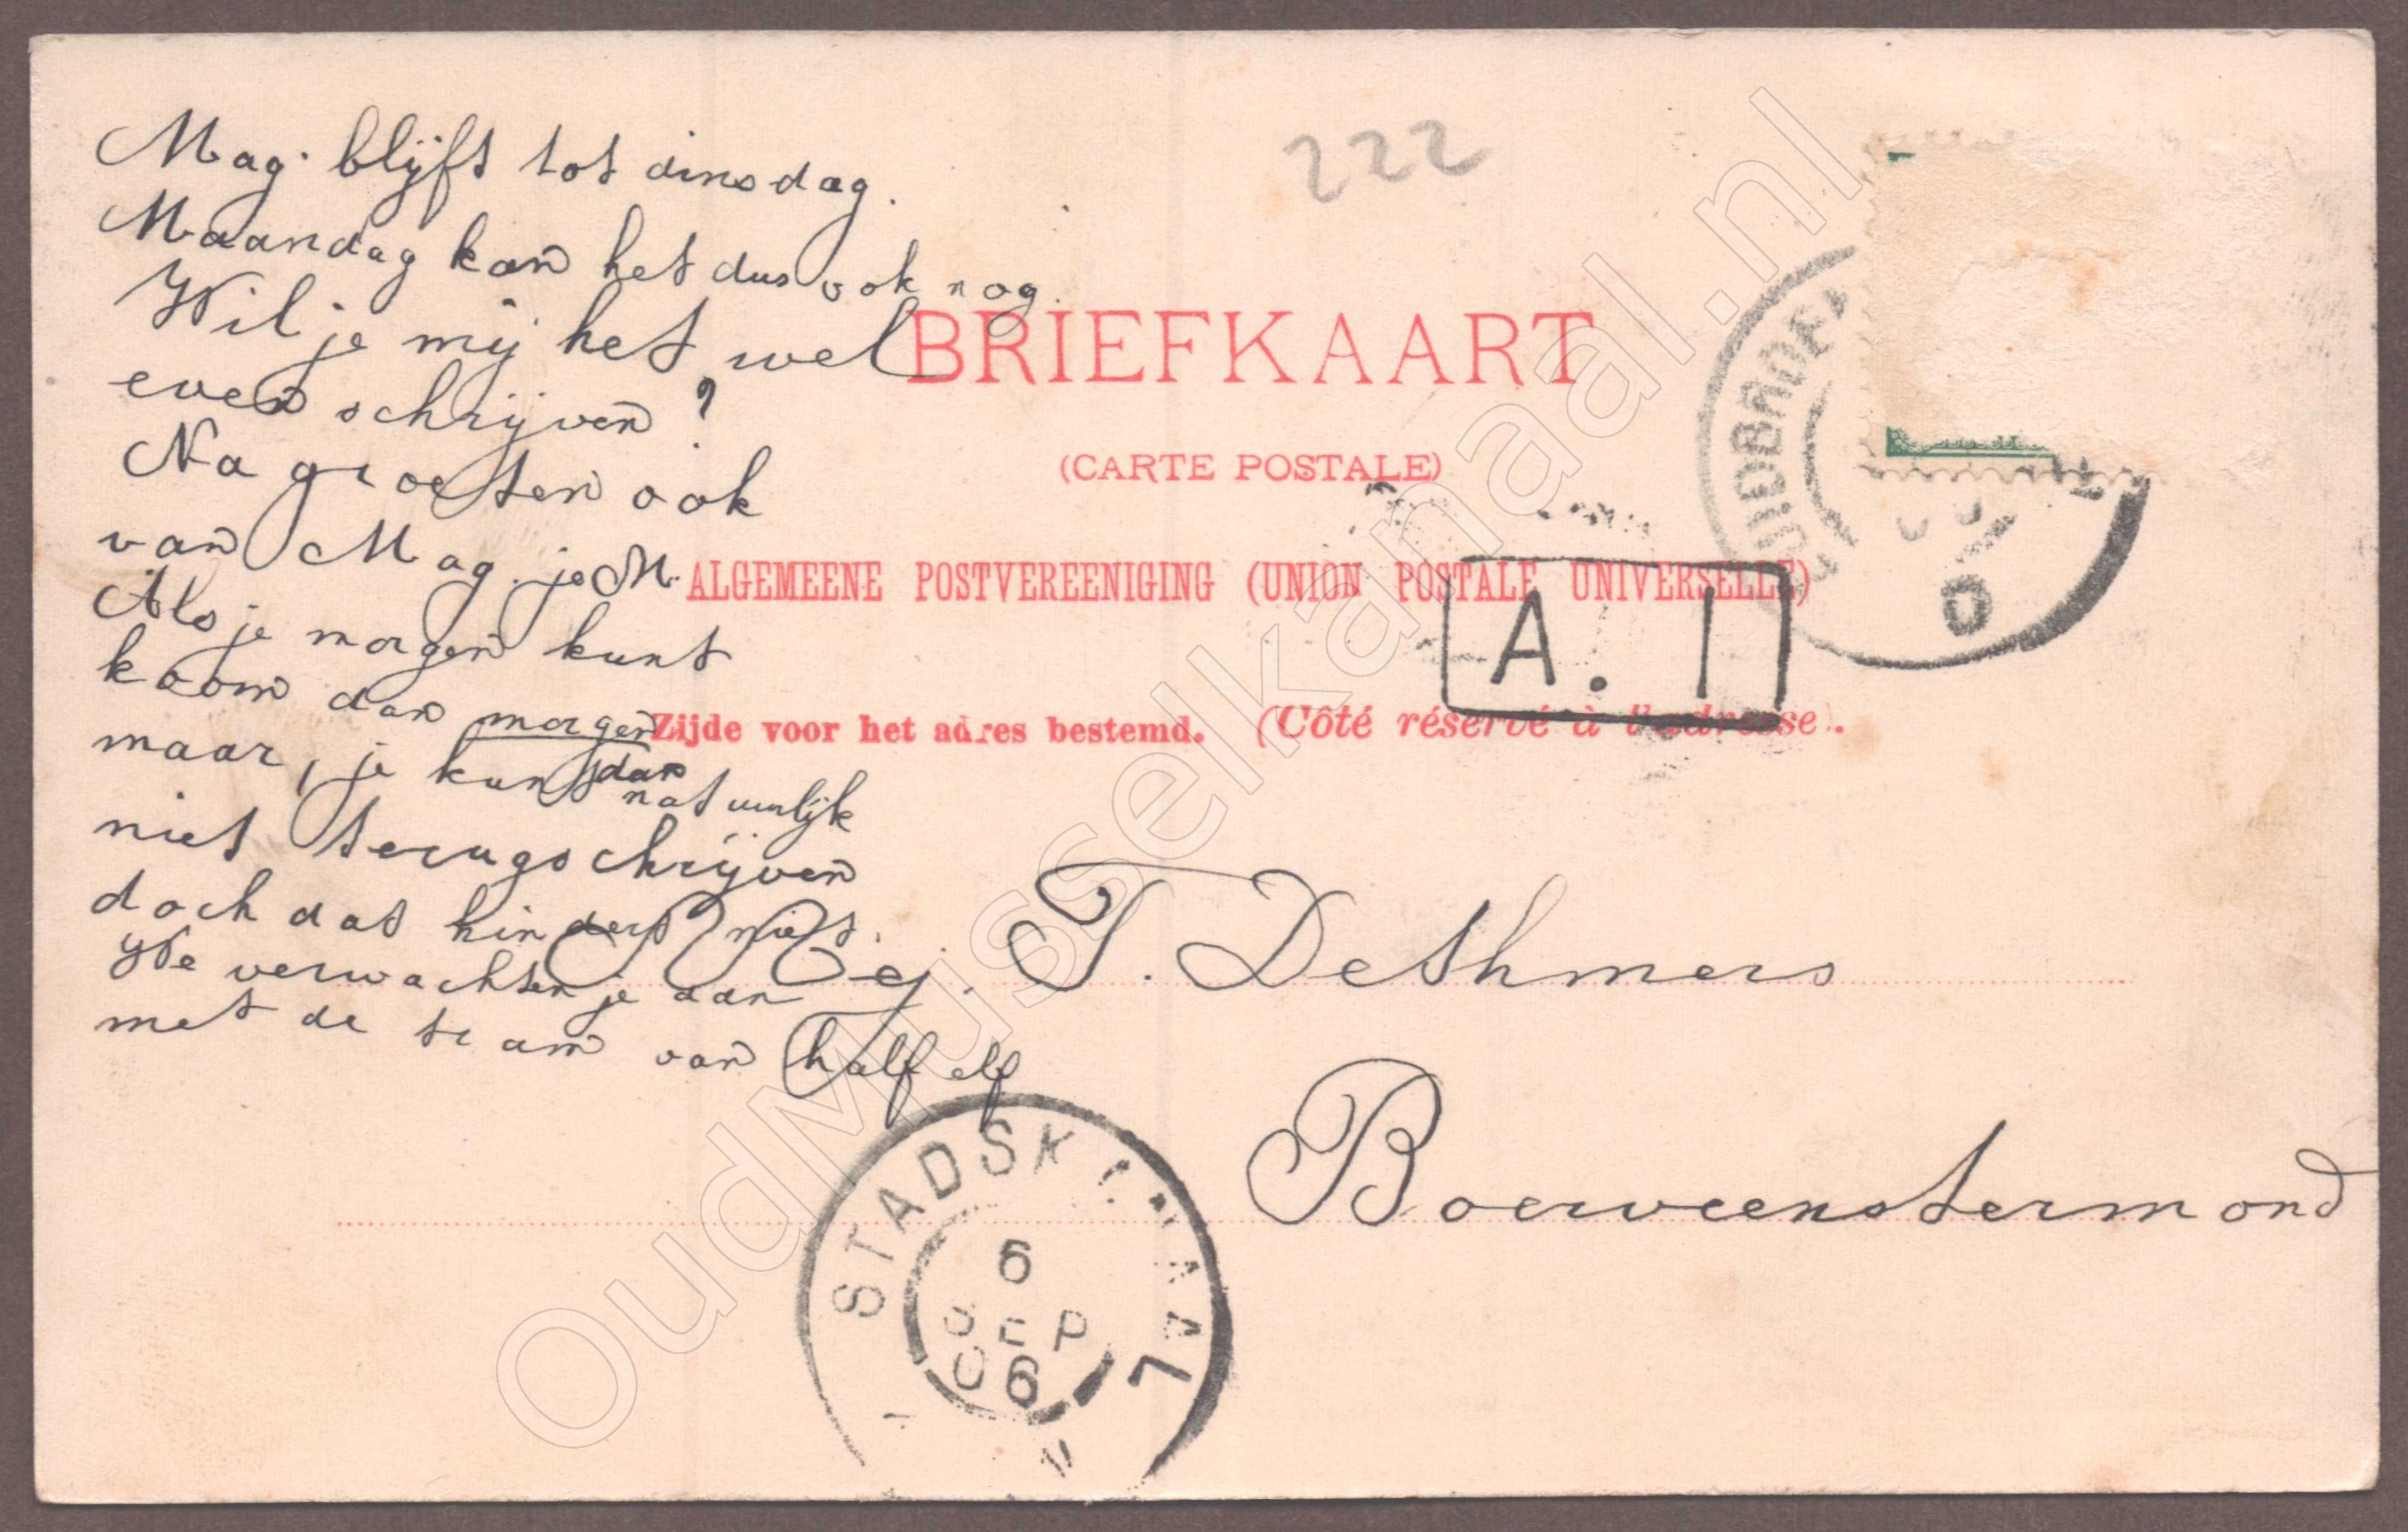 Mag. blijft tot dinsdag.
Maandag kan het dus ook nog.
Wil je mij het wel
even schrijven?
Na groeten ook
van Mag. je M.
Als je morgen kunt
kom dan morgen
maar, je kunt dan
natuurlijk
niet terugschrijven
doch dat hindert niet.
We verwachten je dan
met de tram van half elf
222
BRIEFKAART
(CARTE POSTALE)
ALGEMEENE POSTVEREENIGING (UNION POSTALE UNIVERSELLE)
Zijde voor het adres bestemd. (Côté réservé à l'adresse).
A. 1
Mej. T. Dethmers
Boerveenstermond
STADSKANAAL
6
SEP
06
OudMusselkanaal.nl